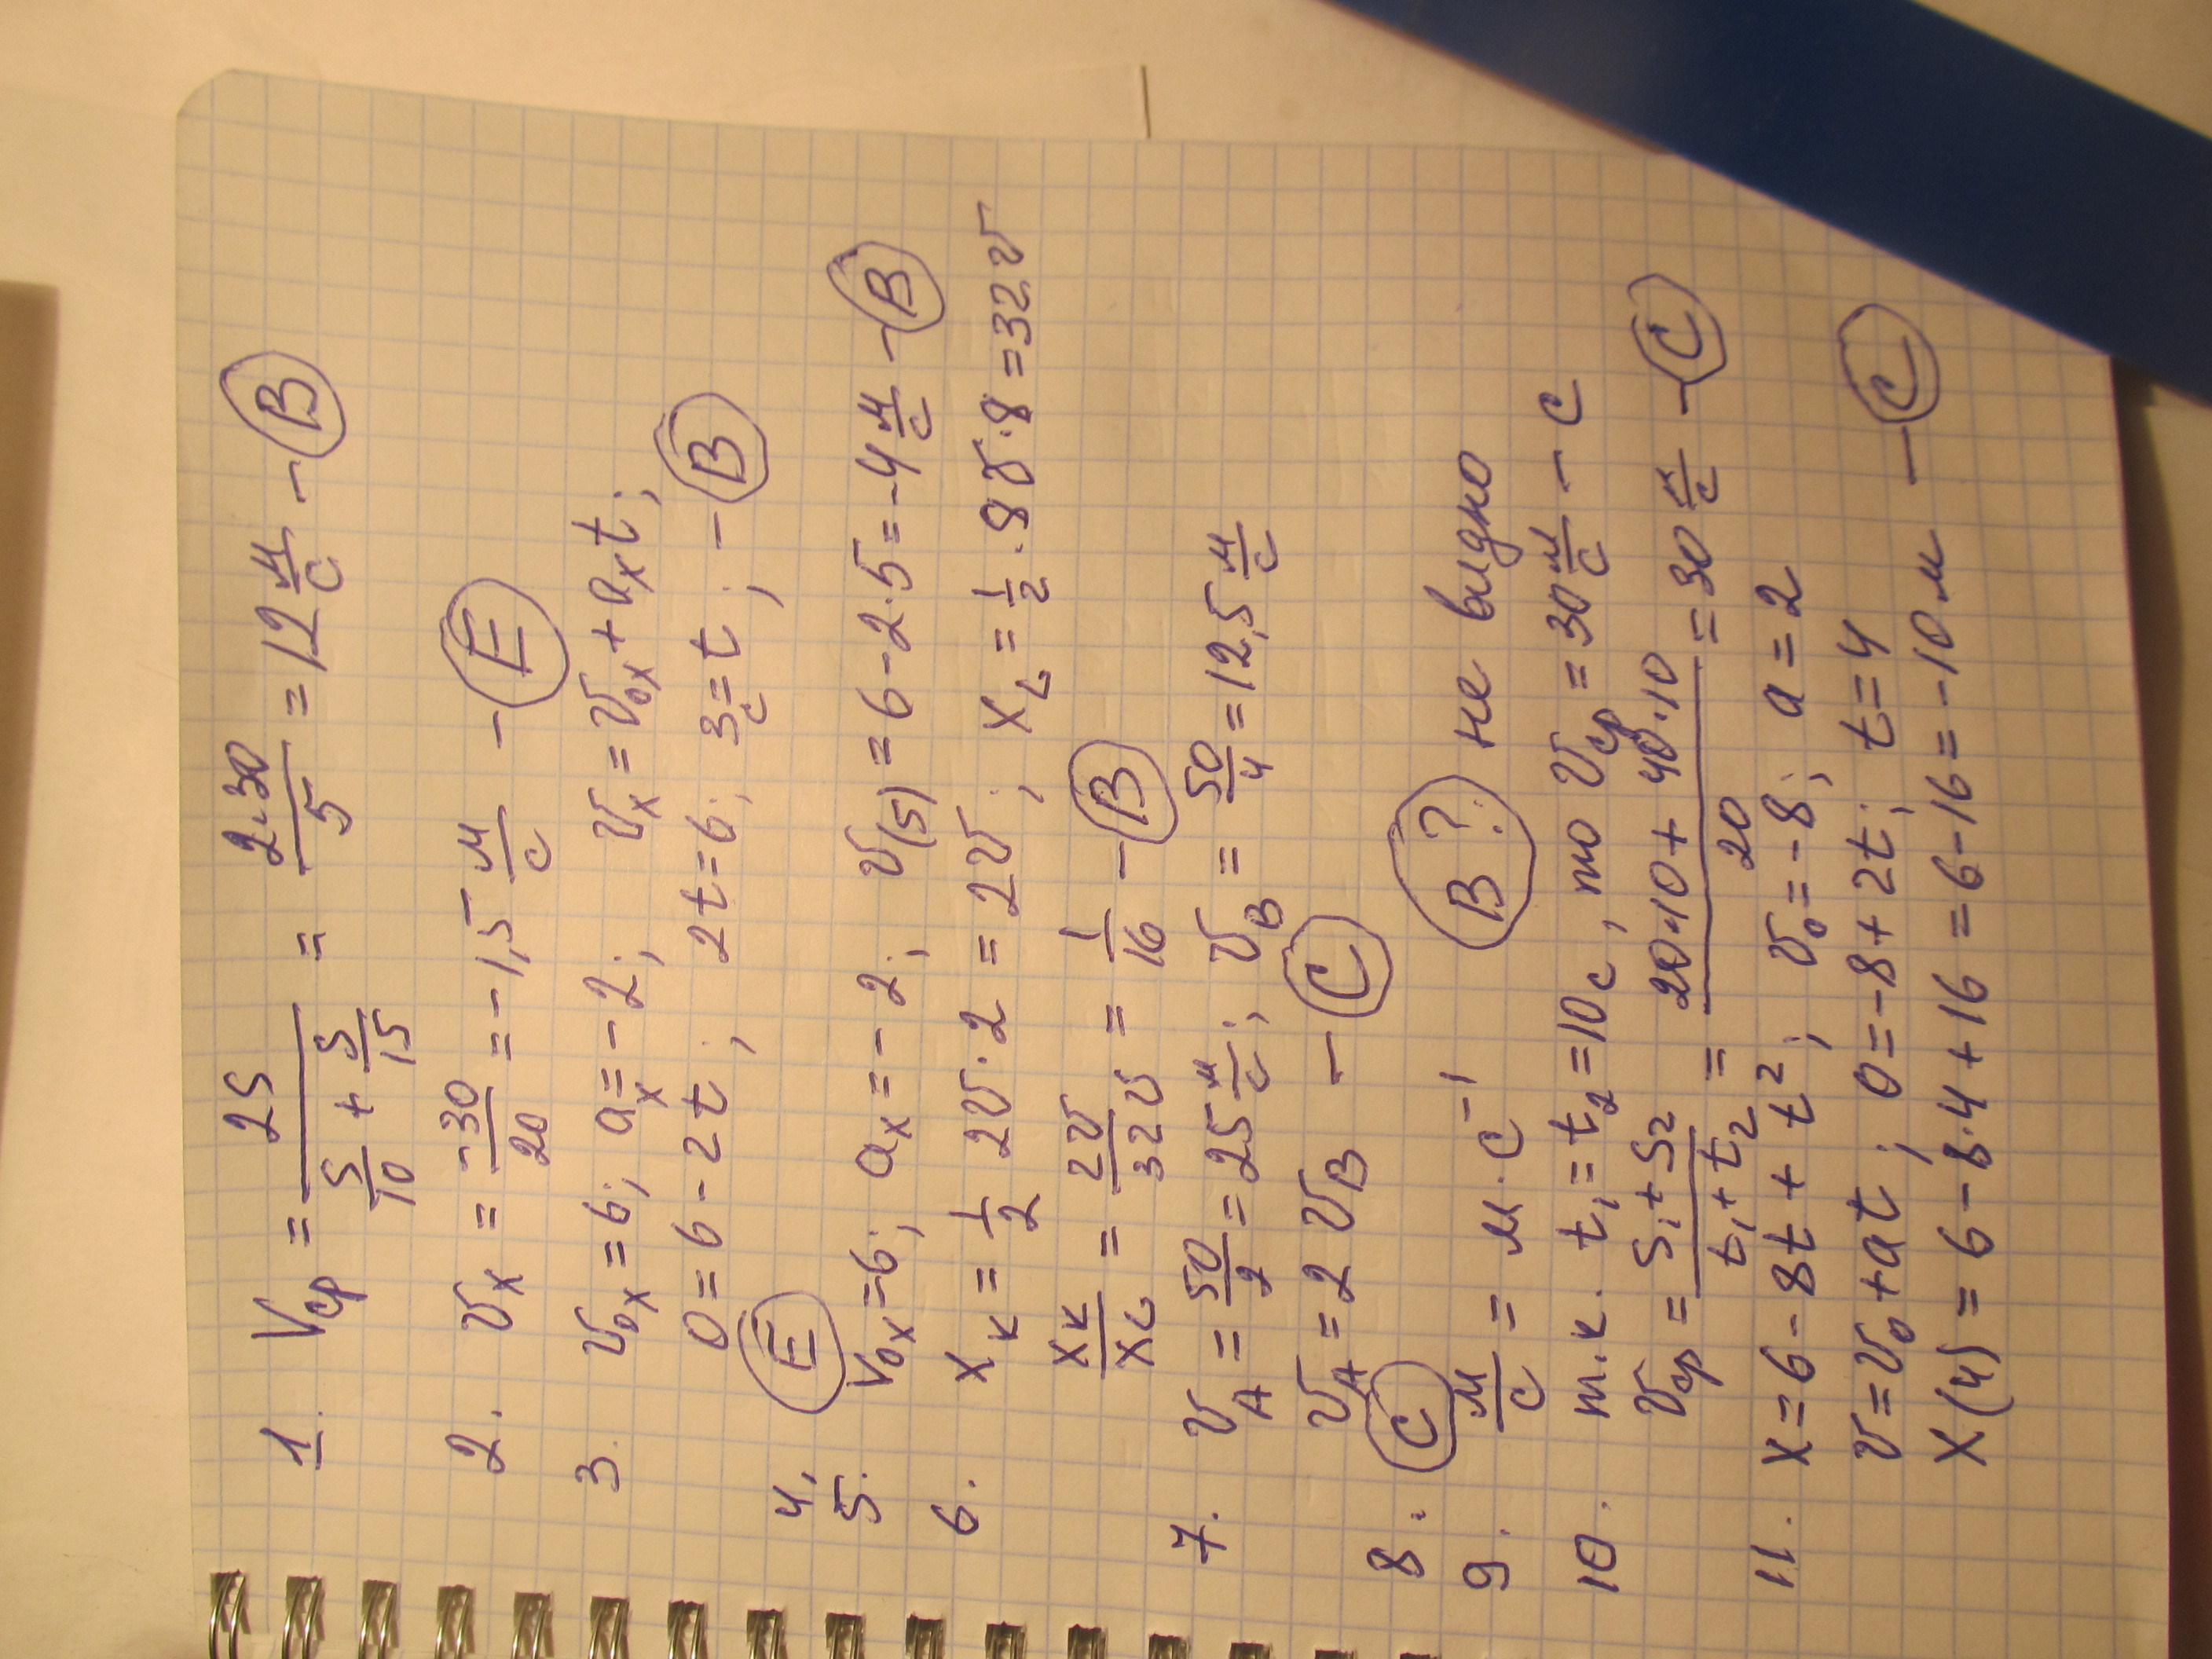 1. Vср = 2S / (S/10 + S/15) = 2·30/5 = 12 м/с – B
2. υx = -30/20 = -1,5 м/с – E
3. υ₀x = 6; ax = -2; υx = υ₀x + axt;
0 = 6 - 2t; 2t = 6; 3c = t; – B
4. E
5. V₀x = 6; ax = -2; υ(5) = 6 - 2·5 = -4 м/с – B
6. xк = 1/2 2υ·2 = 2υ; xL = 1/2 · 8υ·8 = 32υ
xк/xL = 2υ/32υ = 1/16 – B
7. υA = 50/2 = 25 м/с; υB = 50/4 = 12,5 м/с
υA = 2υB – C
8. C
9. м/с = м·с⁻¹ B? не видно
10. т.к. t₁ = t₂ = 10с, то υср = 30 м/с – C
υср = (S₁ + S₂)/(t₁ + t₂) = (20·10 + 40·10)/20 = 30 м/с – C
11. x = 6 - 8t + t²; υ₀ = -8; a = 2
υ = υ₀ + at; 0 = -8 + 2t; t = 4
x(4) = 6 - 8·4 + 16 = 6 - 16 = -10 м – C